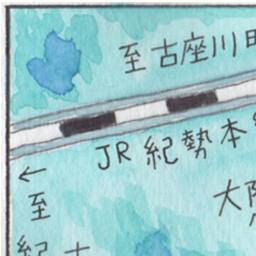 至古座川
JR紀勢本
←
至
紀
大